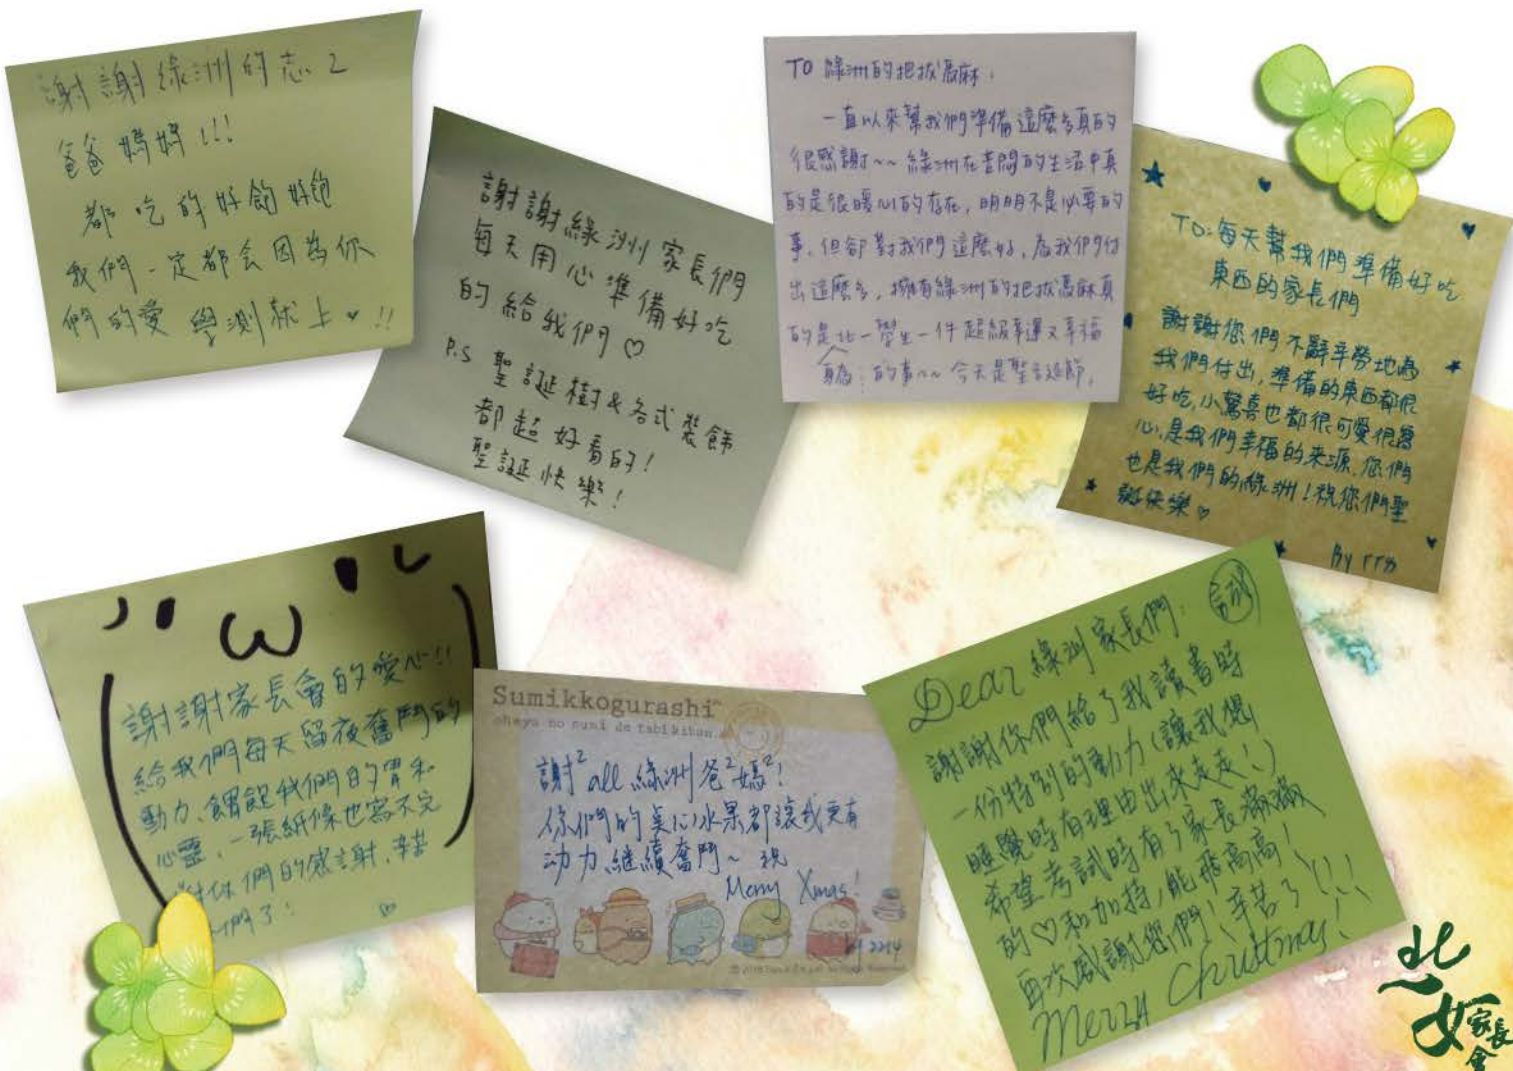 謝謝綠洲的志工
爸爸媽媽!!!
都吃的好飽好飽
我們一定都会因為你
們的愛 學測就上♥!!
謝謝綠洲家長們
每天用心準備好吃
的給我們♡
P.S 聖誕樹&各式裝飾
都超好看的!
聖誕快樂!
TO 綠洲的把拔馬麻:
一直以來幫我們準備這麼多真的
很感謝~~ 綠洲在苦悶的生活中真
的是很暖心的存在,明明不是必要的
事,但卻對我們這麼好,為我們付
出這麼多,擁有綠洲的把拔馬麻真
的是北一學生一件超級幸運又幸福
的事~~ 今天是聖誕節,
TO:每天幫我們準備好吃
東西的家長們
謝謝您們不辭辛勞地為
我們付出,準備的東西都很
好吃,小驚喜也都很可愛很窩
心,是我們幸福的來源.您們
也是我們的綠洲!祝您們聖
誕快樂♡
By
ω
謝謝家長會的愛心!!
給我們每天留夜奮鬥的
動力、餵飽我們的胃和
心靈,一張紙條也寫不完
對你們的感謝,辛苦
們了!
Sumikkogurashi
謝² all 綠洲爸²媽²!
你們的真心水果都讓我更有
动力継續奮鬥~ 祝
Merry Xmas!
by 2214
Dear 綠洲家長們: 誠
謝謝你們給了我讀書時
一份特別的動力(讓我想
睡覺時有理由出來走走!)
希望考試時有了家長滿滿
的♡和加持,能飛高高!
再次感謝您們!辛苦了!!!
Merry Christmas!
北一女
家長會